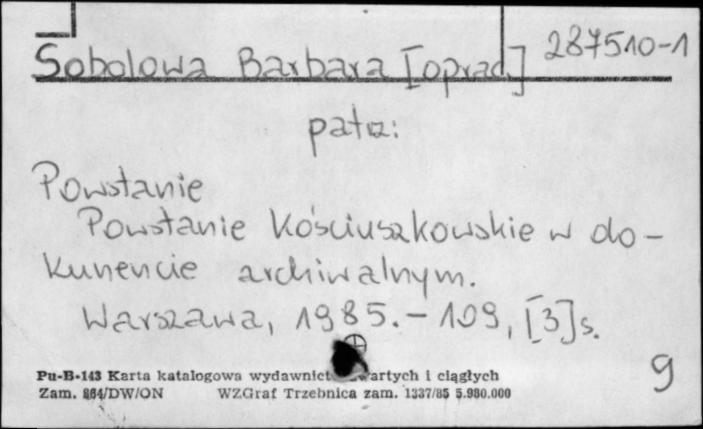 287510-1
Sobolowa Barbara [oprac.]
patrz:
Powstanie
Powstanie Kościuszkowskie w do-
kumencie archiwalnym.
Warszawa, 1985. - 109, [3] s.
9
Pu-B-143 Karta katalogowa wydawnict artych i ciągłych
Zam. 864/DW/ON WZGraf Trzebnica zam. 1337/85 5.980.000